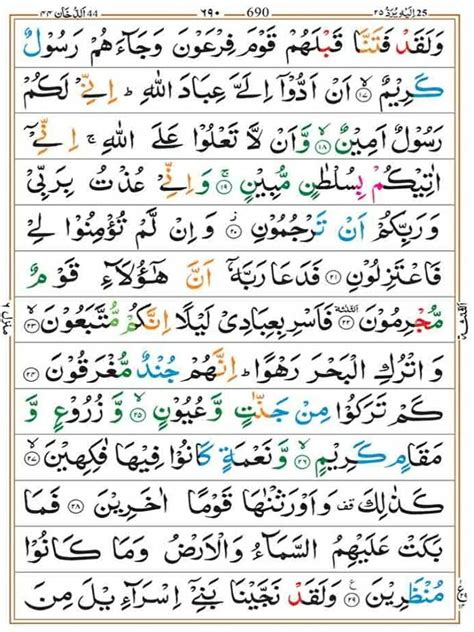 اَلدُّخَان 44 ٤٤ 690 ٦٩٠ اِلَيْهِ يُرَدُّ 25 ٢٥
وَلَقَدْ فَتَنَّا قَبْلَهُمْ قَوْمَ فِرْعَوْنَ وَجَآءَهُمْ رَسُوْلٌ
كَرِيْمٌ ۙ‏ ١٧ اَنْ اَدُّوْۤا اِلَىَّ عِبَادَ اللّٰهِ ؕ اِنِّىْ لَكُمْ
رَسُوْلٌ اَمِيْنٌ ۙ‏ ١٨ وَّاَنْ لَّا تَعْلُوْا عَلَى اللّٰهِ ۚ اِنِّىْۤ
اٰتِيْكُمْ بِسُلْطٰنٍ مُّبِيْنٍ ۚ‏ ١٩ وَاِنِّىْ عُذْتُ بِرَبِّىْ
وَرَبِّكُمْ اَنْ تَرْجُمُوْنِ ٢٠ وَاِنْ لَّمْ تُؤْمِنُوْا لِىْ
فَاعْتَزِلُوْنِ ٢١ فَدَعَا رَبَّهٗۤ اَنَّ هٰٓؤُلَآءِ قَوْمٌ
مُّجْرِمُوْنَ ٢٢ فَاَسْرِ بِعِبَادِىْ لَيْلًا اِنَّكُمْ مُّتَّبَعُوْنَ ۙ‏ ٢٣
وَاتْرُكِ الْبَحْرَ رَهْوًا ؕ اِنَّهُمْ جُنْدٌ مُّغْرَقُوْنَ ٢٤
كَمْ تَرَكُوْا مِنْ جَنّٰتٍ وَّعُيُوْنٍ ۙ‏ ٢٥ وَّزُرُوْعٍ وَّ
مَقَامٍ كَرِيْمٍ ۙ‏ ٢٦ وَّنَعْمَةٍ كَانُوْا فِيْهَا فٰكِهِيْنَ ۙ‏ ٢٧
كَذٰلِكَ قف وَاَوْرَثْنٰهَا قَوْمًا اٰخَرِيْنَ ٢٨ فَمَا
بَكَتْ عَلَيْهِمُ السَّمَآءُ وَالْاَرْضُ وَمَا كَانُوْا
مُنْظَرِيْنَ ٢٩ وَلَقَدْ نَجَّيْنَا بَنِىْۤ اِسْرَآءِيْلَ مِنَ